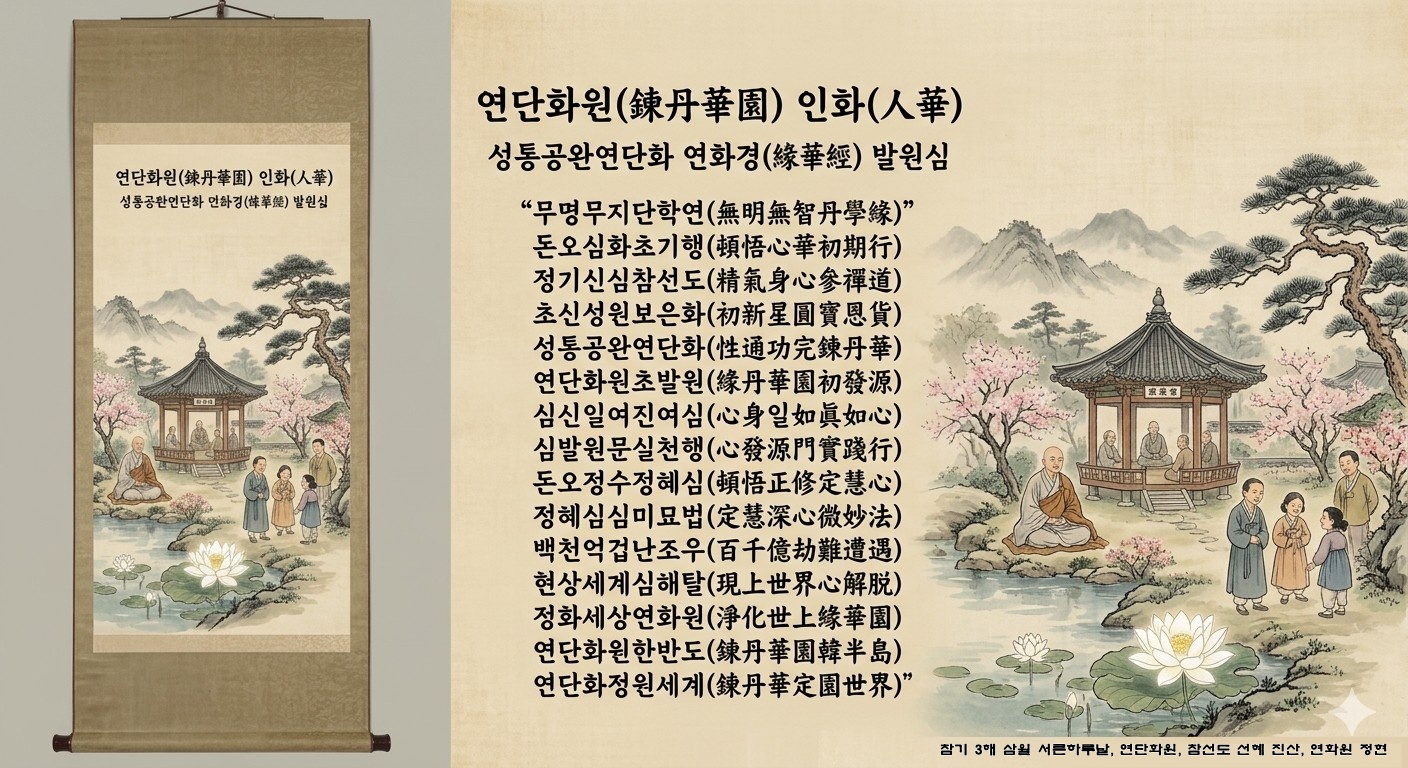 연단화원(鍊丹華園) 인화(人華)
성통공완연단화 연화경(緣華經) 발원심
연단화원(鍊丹華園) 인화(人華)
성통공완연단화 연화경(緣華經) 발원심
“무명무지단학연(無明無智丹學緣)”
돈오심화초기행(頓悟心華初期行)
정기신심참선도(精氣身心參禪道)
초신성원보은화(初新星圓寶恩貨)
성통공완연단화(性通功完鍊丹華)
연단화원초발원(緣丹華園初發源)
심신일여진여심(心身一如眞如心)
심발원문실천행(心發源門實踐行)
돈오정수정혜심(頓悟正修定慧心)
정혜심심미묘법(定慧深心微妙法)
백천억겁난조우(百千億劫難遭遇)
현상세계심해탈(現上世界心解脱)
정화세상연화원(淨化世上緣華園)
연단화원한반도(鍊丹華園韓半島)
연단화정원세계(鍊丹華定園世界)”
참기 3해 삼월 서른하루날, 연단화원, 참선도 선혜 진산, 연화원 정현